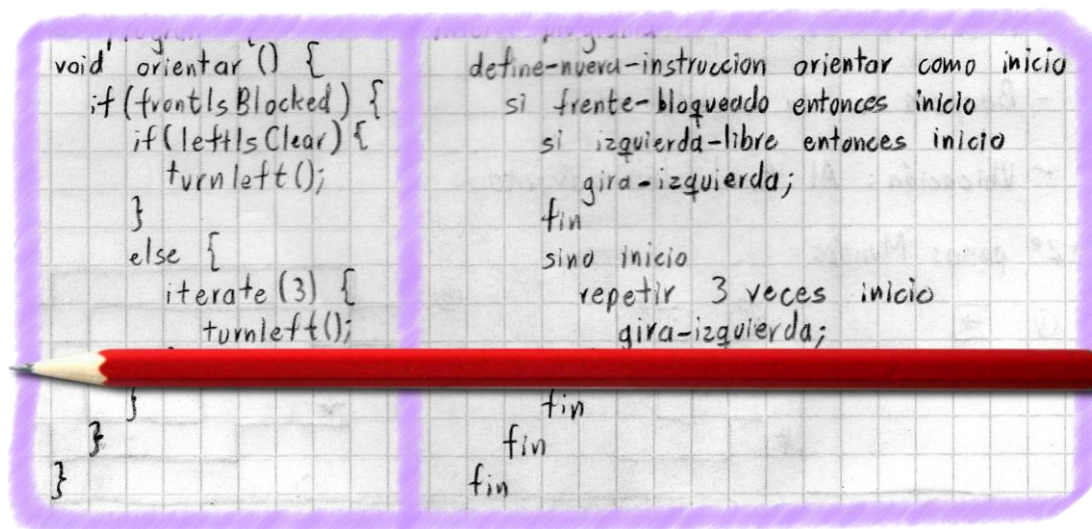 void orientar () {
if (frontIsBlocked) {
if (leftIsClear) {
turnleft();
}
else {
iterate (3) {
turnleft();
}
}
}
define-nueva-instruccion orientar como inicio
si frente-bloqueado entonces inicio
si izquierda-libre entonces inicio
gira-izquierda;
fin
sino inicio
repetir 3 veces inicio
gira-izquierda;
fin
fin
fin